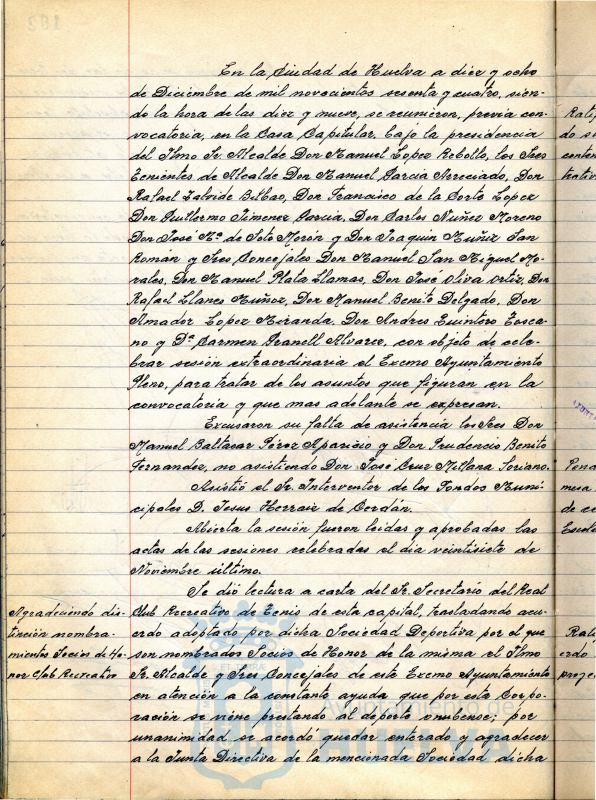 En la Ciudad de Huelva a diez y ocho
de Diciembre de mil novecientos sesenta y cuatro, sien-
do la hora de las diez y nueve, se reunieron, previa con-
vocatoria, en la Casa Capitular, bajo la presidencia
del Ilmo Sr. Alcalde Don Manuel Lopez Rebollo, los Sres
Tenientes de Alcalde Don Manuel Garcia Arreciado, Don
Rafael Zalvide Bilbao, Don Francisco de la Corte Lopez
Don Guillermo Jimenez Garcia, Don Carlos Nuñez Moreno
Don José Mª de Soto Morón y Don Joaquin Muñiz San
Román y Sres Concejales Don Manuel San Miguel Mo-
rales, Don Manuel Plata Llamas, Don José Oliva Ortiz, Don
Rafael Llanes Muñoz, Don Manuel Benito Delgado, Don
Amador Lopez Miranda, Don Andres Quintero Tosca-
no y Dª Carmen Granell Alvarez, con objeto de cele-
brar sesión extraordinaria el Excmo Ayuntamiento
Pleno, para tratar de los asuntos que figuran en la
convocatoria y que mas adelante se expresan.
Excusaron su falta de asistencia los Sres Don
Manuel Baltasar Pérez Aparicio y Don Prudencio Benito
Fernandez, no asistiendo Don José Cruz Millana Soriano.
Asistió el Sr. Interventor de los Fondos Muni-
cipales D. Jesus Herraiz de Cerdán.
Abierta la sesión fueron leidas y aprobadas las
actas de las sesiones celebradas el dia veintisiete de
Noviembre último.
Se dió lectura a carta del Sr. Secretario del Real
Club Recreativo de Tenis de esta capital, trasladando acu-
erdo adoptado por dicha Sociedad Deportiva por el que
son nombrados Socios de Honor de la misma el Ilmo
Sr. Alcalde y Sres Concejales de este Excmo Ayuntamiento
en atención a la constante ayuda que por esta Corpo-
ración se viene prestando al deporte onubense; por
unanimidad se acordó quedar enterado y agradecer
a la Junta Directiva de la mencionada Sociedad dicha
Agradeciendo dis-
tinción nombra-
mientos Socios de Ho-
nor Club Recreativo
Ayuntamiento de
HUELVA